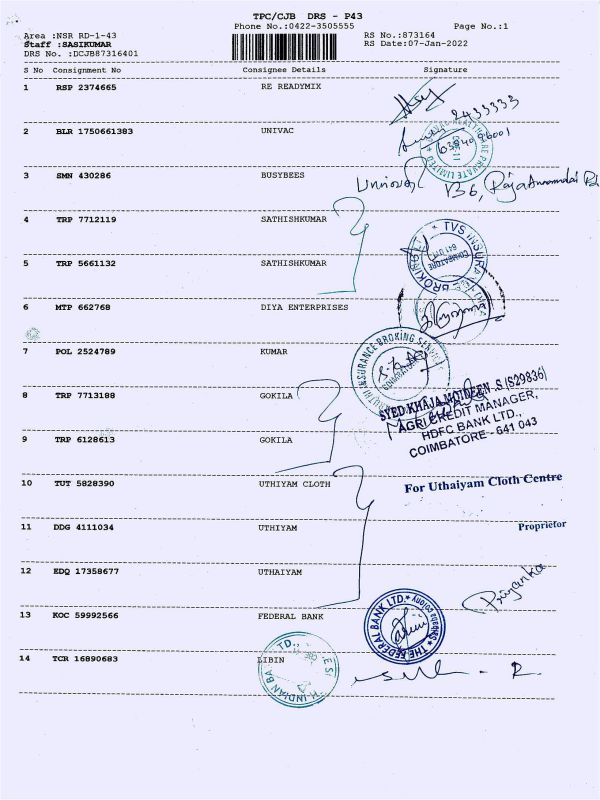 TPC/CJB DRS - P43
Phone No.:0422-3505555 Page No.:1
Area :NSR RD-1-43 RS No.:873164
Staff :SASIKUMAR RS Date:07-Jan-2022
DRS No. :DCJB87316401
S No Consignment No Consignee Details Signature
1 RSP 2374665 RE READYMIX
9433333
2 BLR 1750661383 UNIVAC
3 SMN 430286 BUSYBEES
B6,
4 TRP 7712119 SATHISHKUMAR
TVS INSURA
BROKING
COIMBATORE
5 TRP 5661132 SATHISHKUMAR
6 MTP 662768 DIYA ENTERPRISES
7 POL 2524789 KUMAR
INSURANCE BROKING
COIMBATORE
8 TRP 7713188 GOKILA
SYED KHAJA MOIDEEN .S (S29836)
AGRI CREDIT MANAGER,
HDFC BANK LTD.,
COIMBATORE - 641 043
9 TRP 6128613 GOKILA
10 TUT 5828390 UTHIYAM CLOTH
For Uthaiyam Cloth Centre
11 DDG 4111034 UTHIYAM
Proprietor
12 EDQ 17358677 UTHAIYAM
Priyanka
13 KOC 59992566 FEDERAL BANK
THE FEDERAL BANK LTD.
14 TCR 16890683 LIBIN
H INDIAN BA